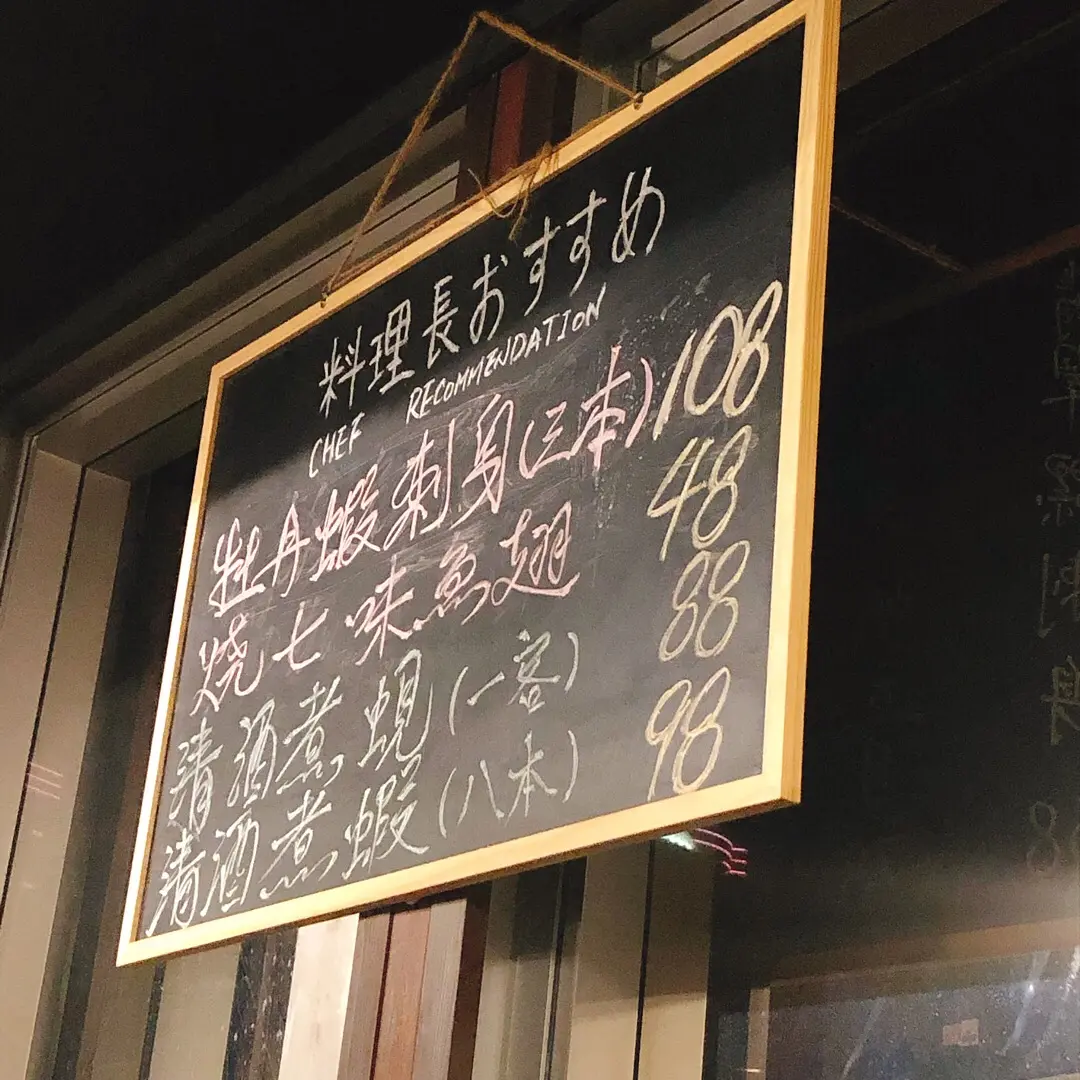 料理長おすすめ
CHEF RECOMMENDATION
牡丹蝦刺身(三本) 108
烧七味魚翅 48
清酒煮蜆(一客) 88
清酒煮蝦(八本) 98